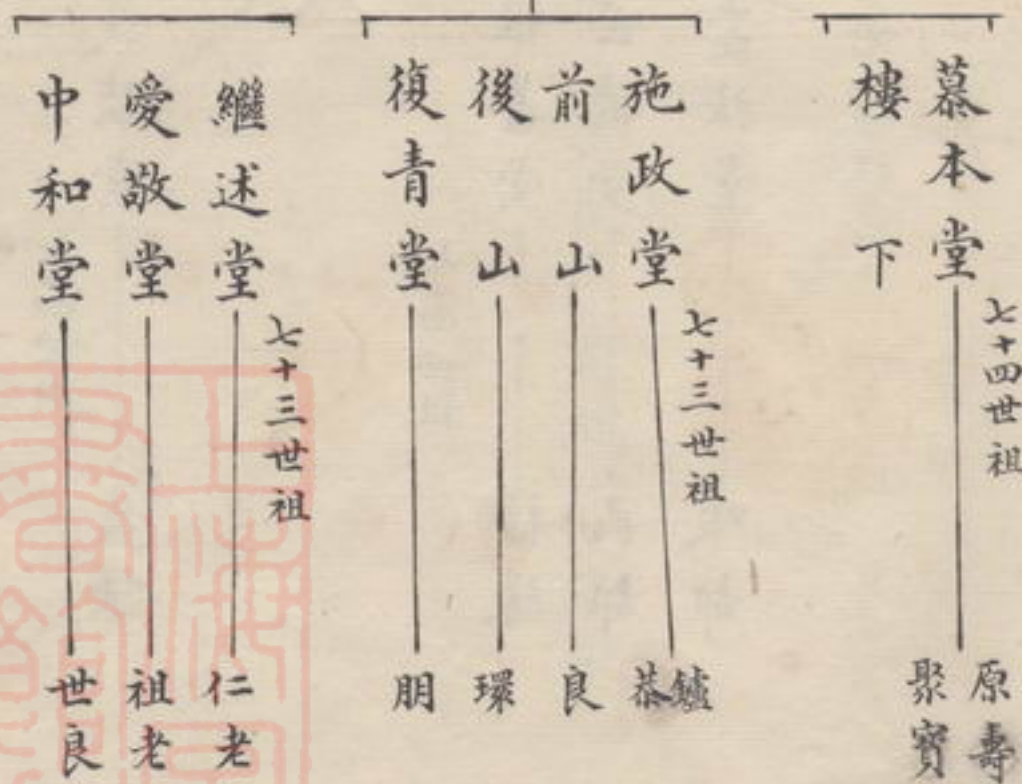 慕本堂
七十四世祖
原壽
聚寶
樓下
施政堂
七十三世祖
鑪
恭
前山
良
後山
環
復青堂
朋
繼述堂
七十三世祖
仁老
愛敬堂
祖老
中和堂
世良